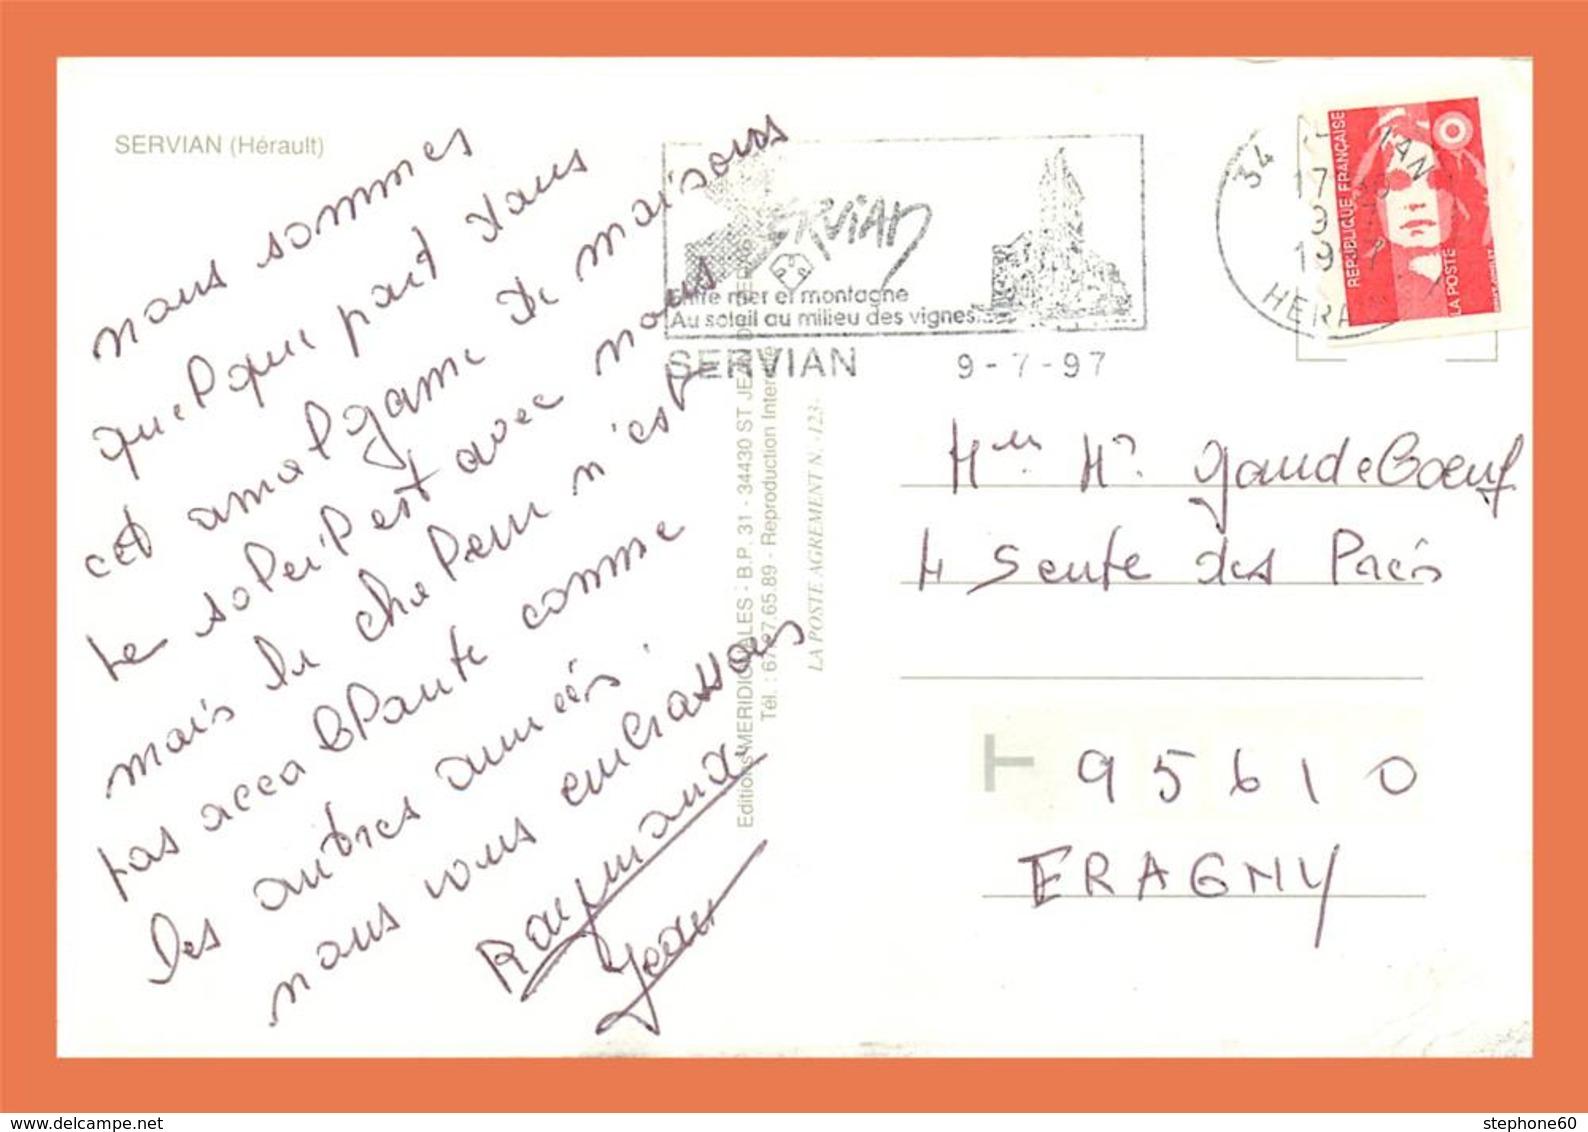 SERVIAN (Hérault)
nous sommes
quelque part dans
cet amalgame de maisons
le soleil est avec nous
mais la chaleur n'est
pas accablante comme
les autres années.
nous vous embrassons
Raymonde
Jean
SERVIAN
Entre mer et montagne
Au soleil au milieu des vignes...
SERVIAN 9-7-97
34
IAN
17
9
1997
HERAULT
REPUBLIQUE FRANÇAISE
LA POSTE
Editions MERIDIONALES - B.P. 31 - 34430 ST JEAN DE VEDAS
Tél. : 67.27.65.89 - Reproduction Interdite
LA POSTE AGREMENT N. -123-
Mr Gaudeboeuf
4 Sente des Prés
T
95610
ERAGNY
www.delcampe.net
stephone60